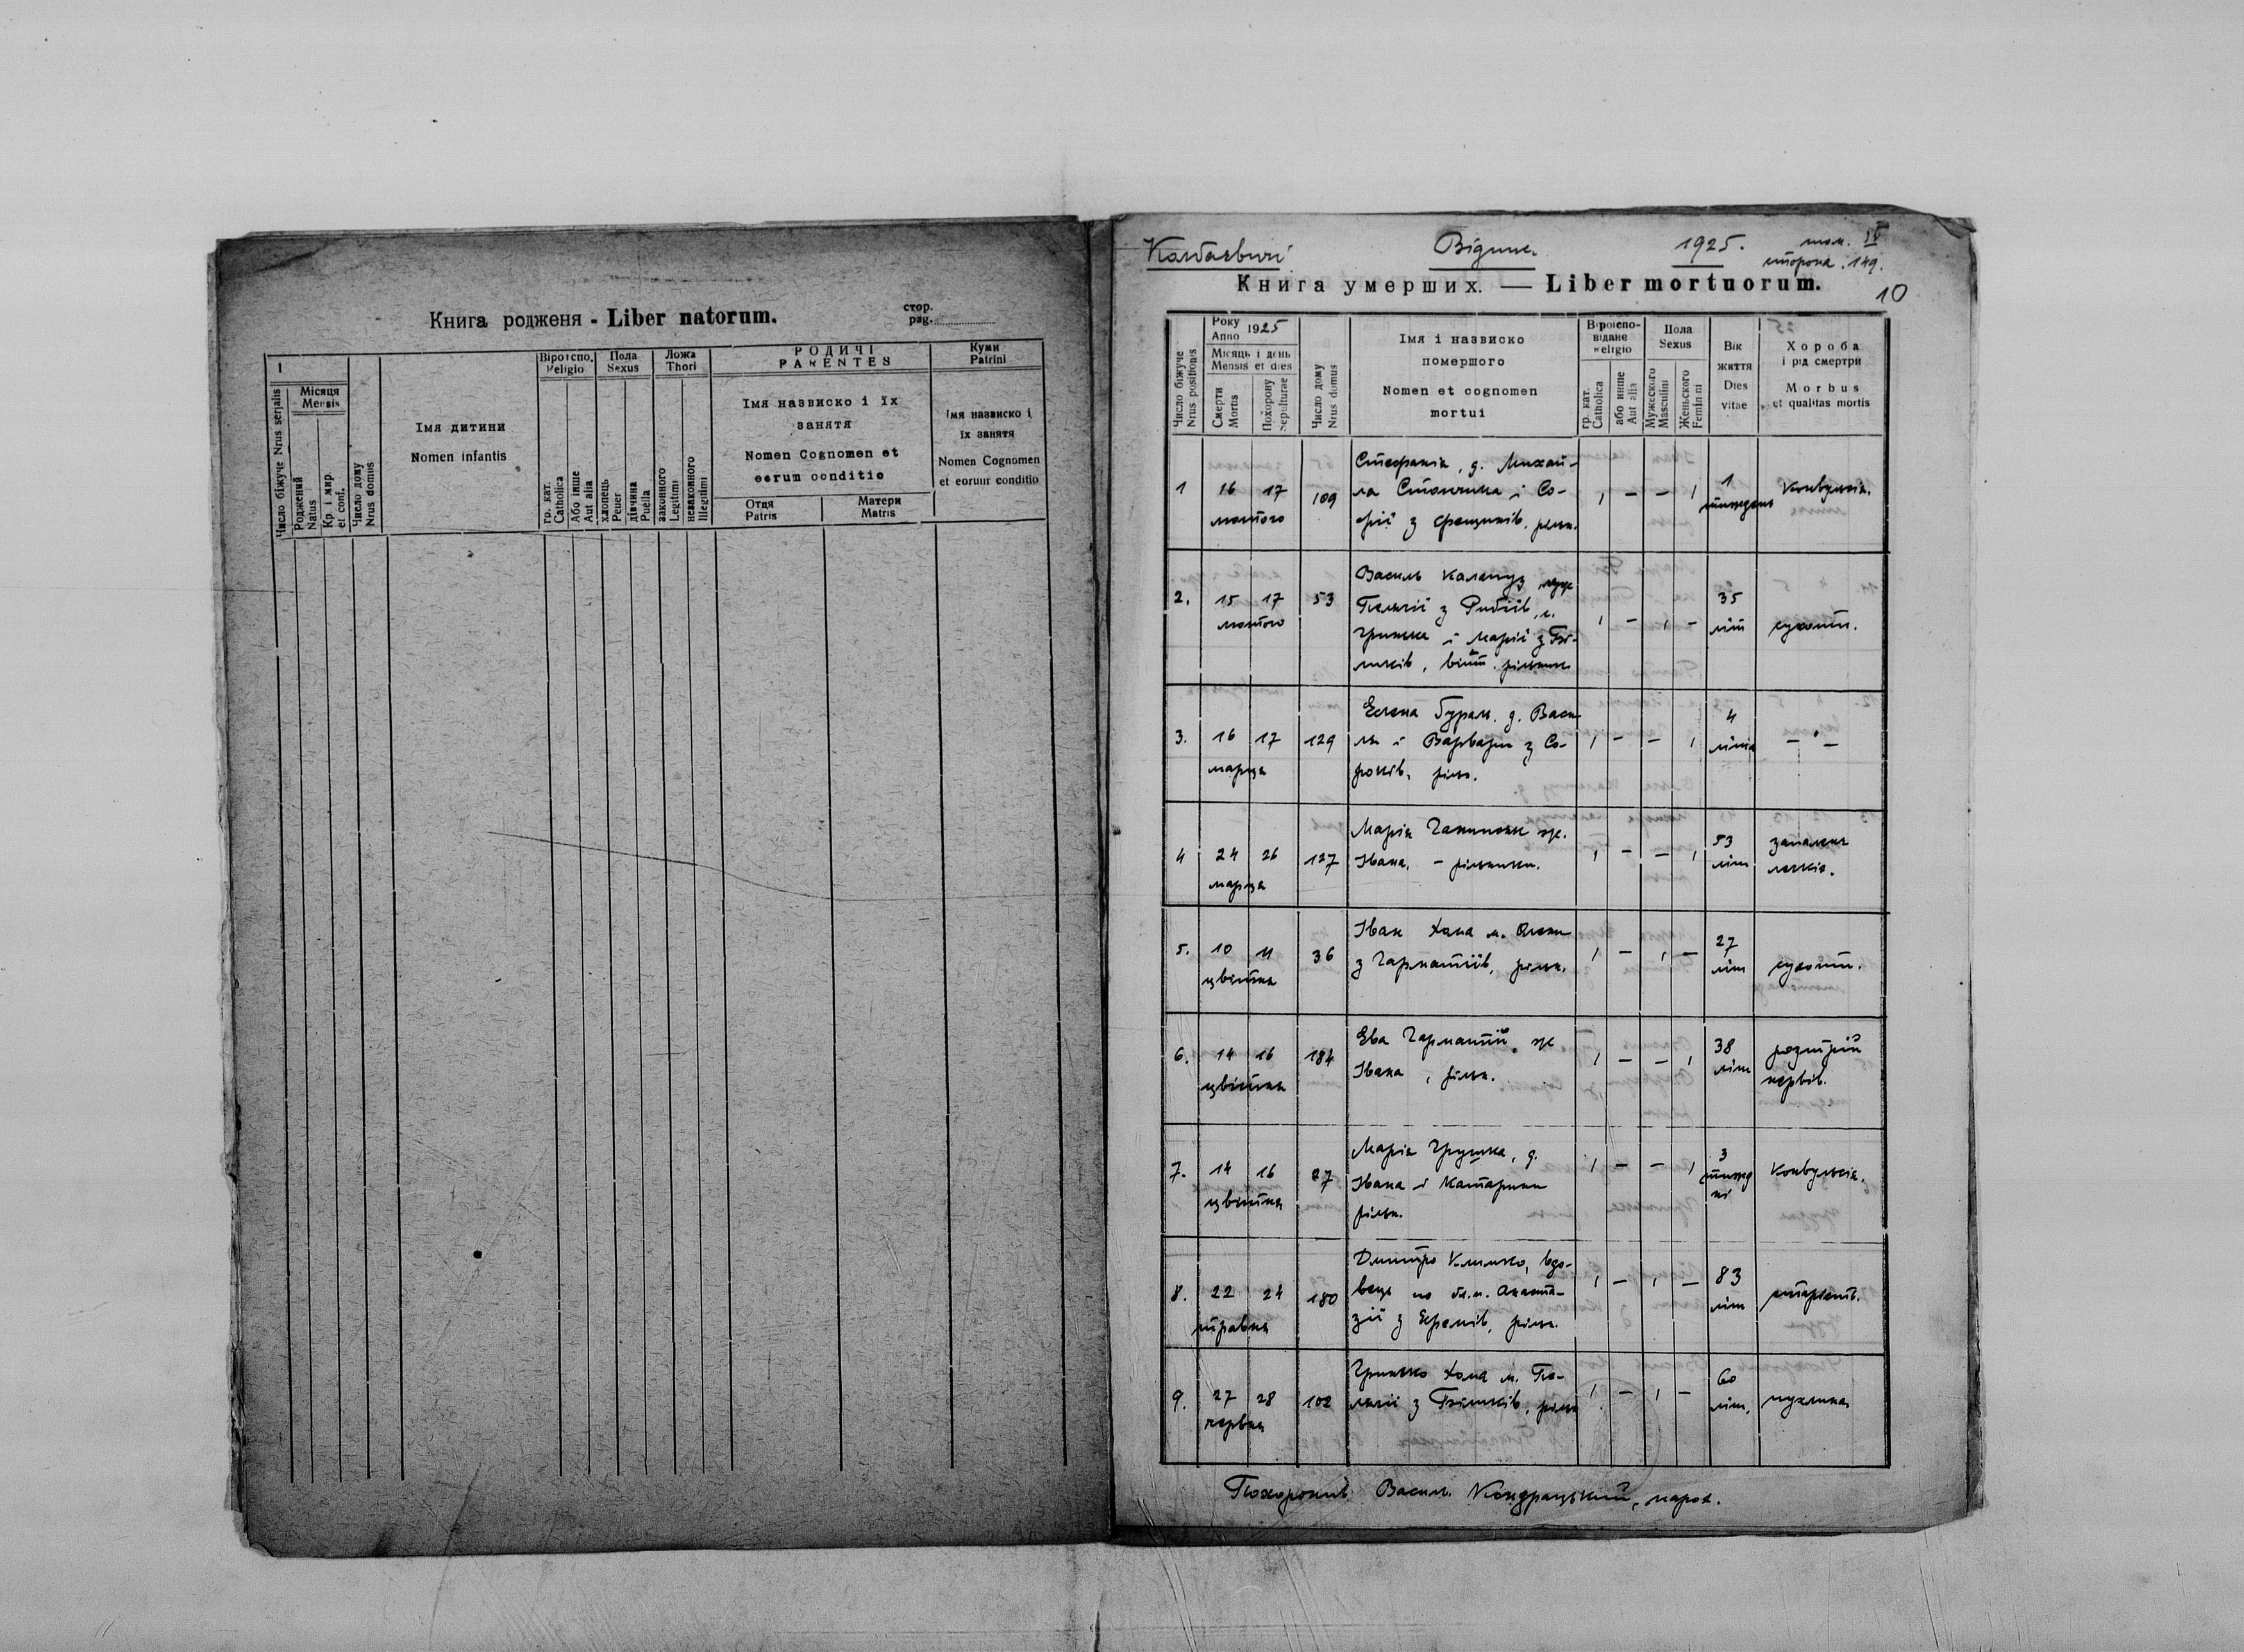 Книга родженя - Liber natorum.
стор.
pag.
1
Число біжуче Nrus serjalis
Місяця
Mensis
Роджений
Natus
Кр. і мир.
et conf.
Число дому
Nrus domus
Імя дитини
Nomen infantis
Віроіспо.
Religio
гр. кат.
Catholica
Або інше
Aut alia
Пола
Sexus
хлопець
Peuer
дівчина
Puella
Ложа
Thori
законного
Legitimi
незаконного
Illegitimi
РОДИЧІ
PARENTES
Імя назвиско і їх
занятя
Nomen Cognomen et
eorum conditio
Отця
Patris
Матери
Matris
Куми
Patrini
Імя назвиско і
їх занятя
Nomen Cognomen
et eorum conditio
Колбаєвичі
1925.
том. IV
сторона 149.
Книга умерших. — Liber mortuorum.
10
Число біжуче
Nrus positionis
Року
Anno 1925
Місяць і день
Mensis et dies
Смерти
Mortis
Похорону
Sepulturae
Число дому
Nrus domus
Імя і назвиско
помершого
Nomen et cognomen
mortui
Віроіспо-
відане
Religio
гр. кат.
Catholica
або инше
Aut alia
Пола
Sexus
Мужеского
Masculini
Женьского
Feminini
Вік
життя
Dies
vitae
Хороба
і рід смертри
Morbus
et qualitas mortis
1 16 17 лютого 109
Стефанія, д. Михай-
ла і Со-
фії з рільн.
1 - - 1 1 тиждень Конвульсія.
2. 15 17 лютого 53
Василь Калапуз муж
Пелагії з Рибіїв, с.
Гринька і Марії з Бі-
ликів, війт. рільник
1 - 1 - 35 літ сухоти.
3. 16 17 марця 129
Єлена Бурак. д. Васи
ля і Варвари з Со-
років. ріль.
1 - - 1 4 літа — " —
4 24 26 марця 127
Марія ж.
Івана. - рільника.
1 - - 1 53 літ запаленя
легкіх.
5. 10 11 цвітня 36
Іван Хома м. Олени
з Гарматіїв, рільн.
1 - 1 - 27 літ сухоти.
6. 14 16 цвітня 184
Ева Гарматій ж
Івана, рільн.
1 - - 1 38 літ розтрій
нервів.
7. 14 16 цвітня 27
Марія Грушка, д.
Івана і Катарини
рільн.
1 - - 1 3 тижд
ні Конвульсія.
8. 22 24 травня 180
Дмитро Климко, вдо-
вець по бл.п. Анаста-
зії з Яремів, рільн.
1 - 1 - 83 літ старість.
9. 27 28 червня 102
Гринько Хома м. Пе-
лагії з Біликів, рільн
1 - 1 - 60 літ. пухлина
Похоронив Василь Кондрацький, парох.